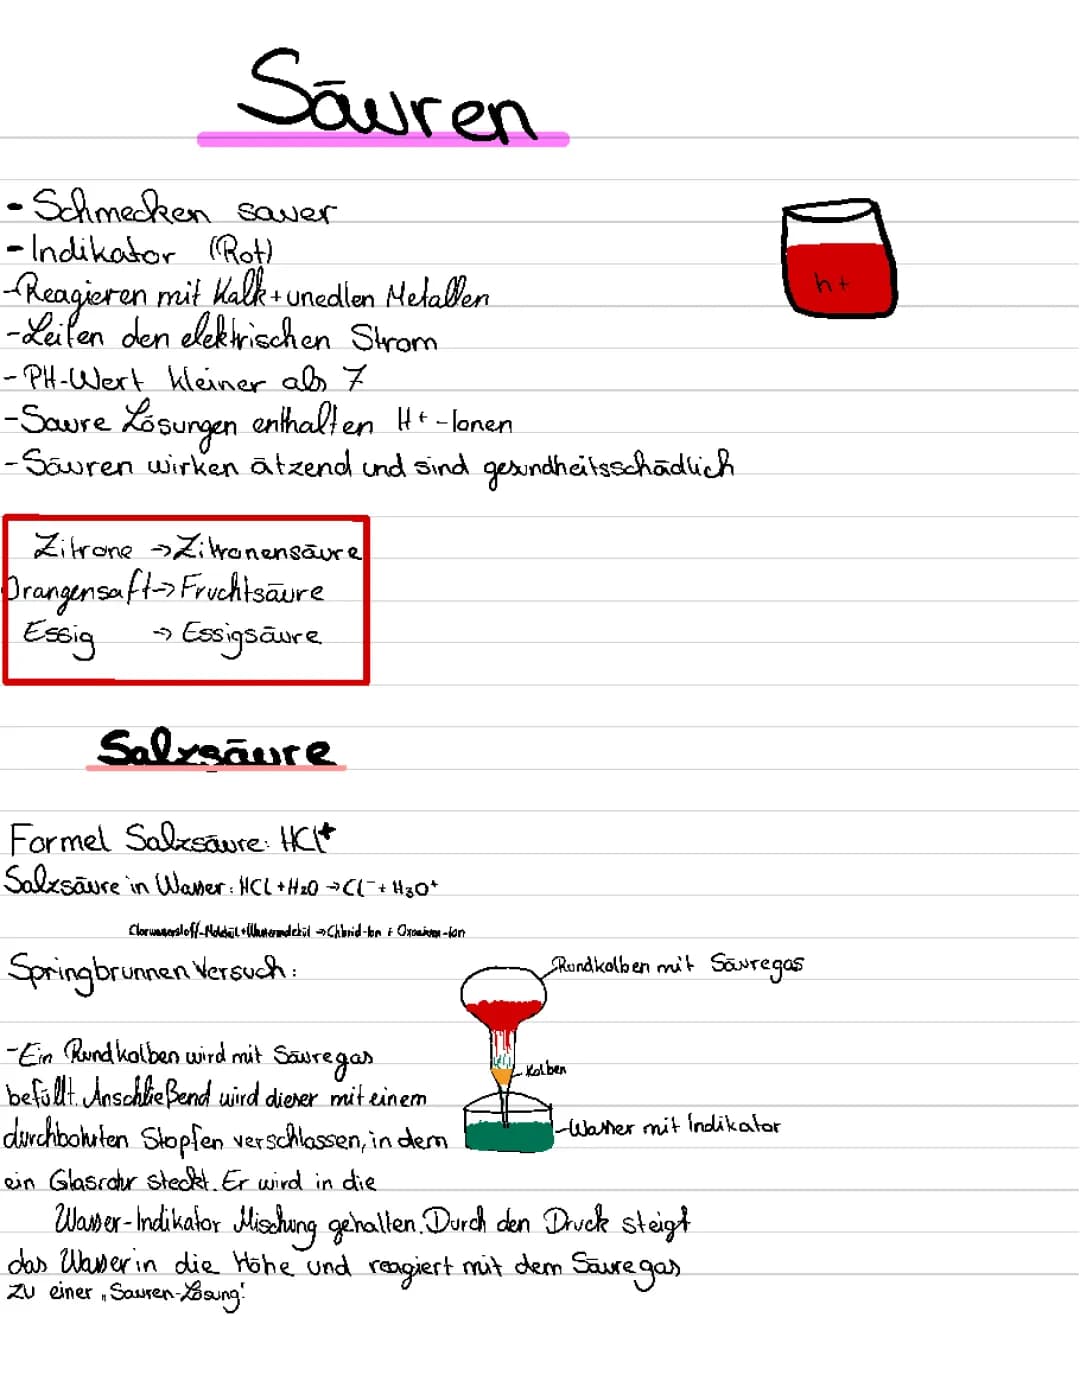 Säuren
- Schmecken sauer
- Indikator (Rot)
h+
- Reagieren mit Kalk + unedlen Metallen
- Leiten den elektrischen Strom
- PH-Wert kleiner als 7
- Saure Lösungen enthalten H+ -Ionen
- Säuren wirken ätzend und sind gesundheitsschädlich
Zitrone -> Zitronensäure
Orangensaft -> Fruchtsäure
Essig -> Essigsäure
Salzsäure
Formel Salzsäure: HCl+
Salzsäure in Wasser: HCL + H2O -> Cl⁻ + H3O+
Clorwasserstoff-Molekül + Wassermolekül -> Chlorid-Ion + Oxonium-Ion
Springbrunnen Versuch:
Rundkolben mit Säuregas
- Ein Rundkolben wird mit Säuregas
Kolben
befüllt. Anschließend wird dieser mit einem
Wasser mit Indikator
durchbohrten Stopfen verschlossen, in dem
ein Glasrohr steckt. Er wird in die
Wasser-Indikator Mischung gehalten. Durch den Druck steigt
das Wasser in die Höhe und reagiert mit dem Säuregas
zu einer „Säuren-Lösung"